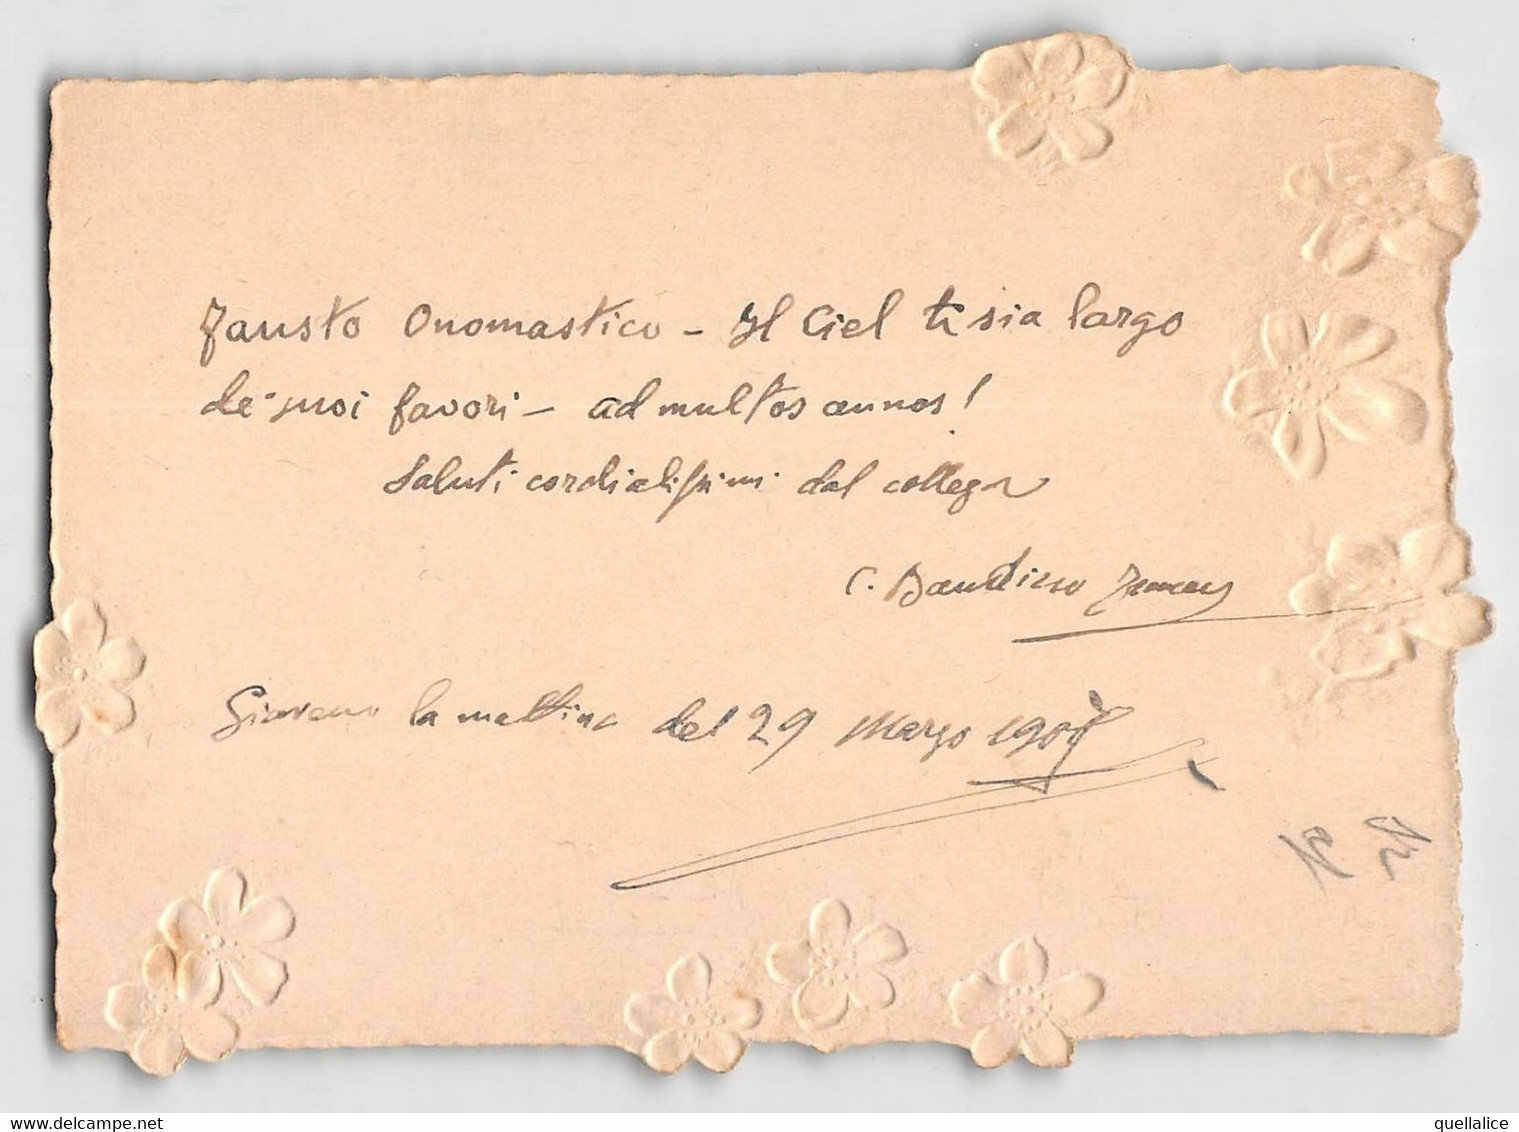 Fausto Onomastico - Il Ciel ti sia largo
de' suoi favori - ad multos annos!
Saluti cordialissimi dal collega
C. Baudino
Giaveno la mattina del 29 Marzo
quellalice